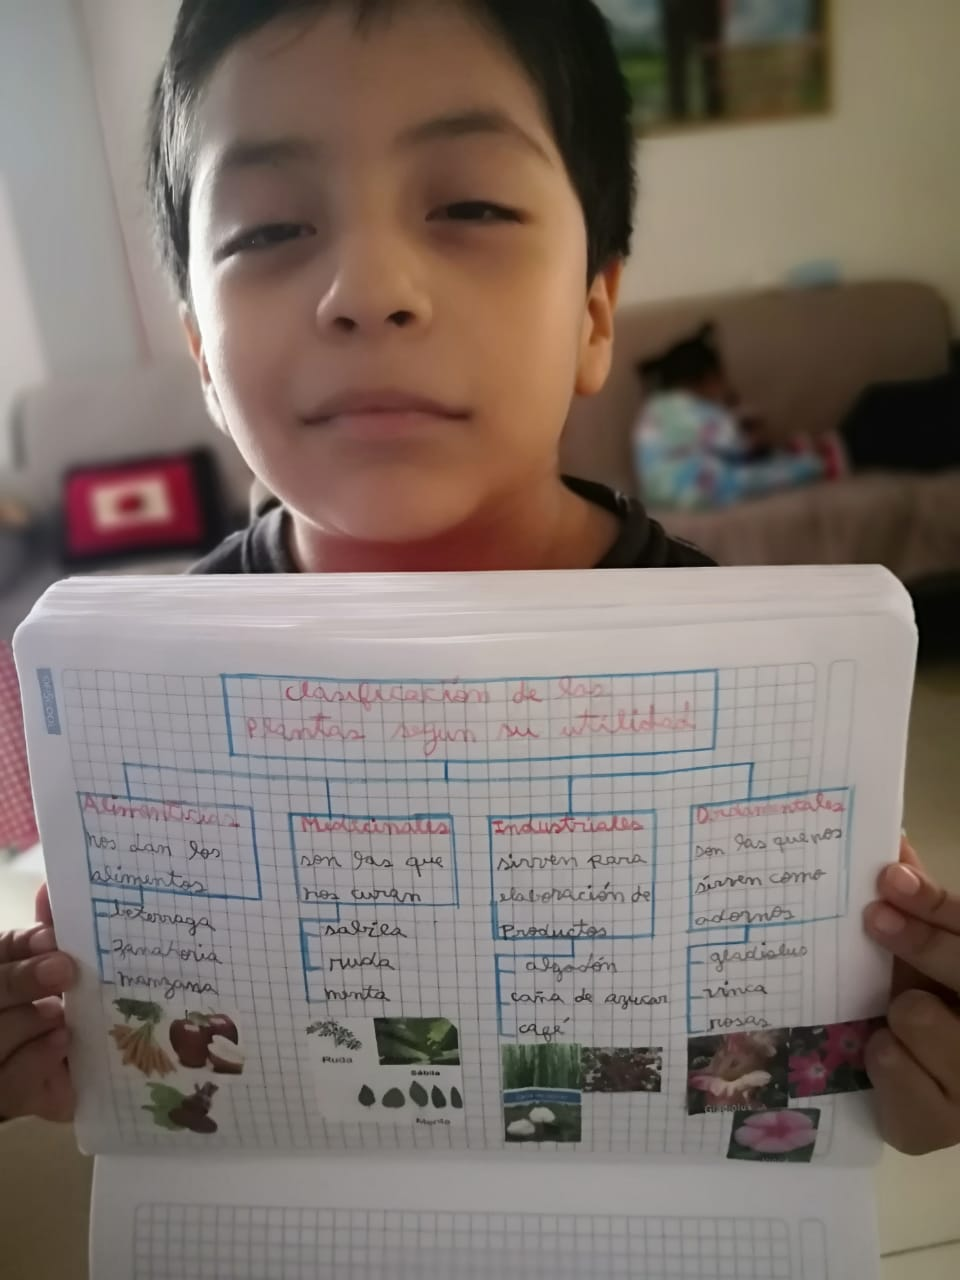 Clasificación de las
plantas segun su utilidad
Alimenticias
nos dan los
alimentos
beterraga
zanahoria
manzana
Medicinales
son las que
nos curan
sabila
ruda
menta
Industriales
sirven para
elaboración de
Productos
algodón
caña de azucar
café
Ordamentales
son las que nos
sirven como
adornos
gladiolus
vinca
rosas
Ruda
Sábila
Menta
Gladiolus